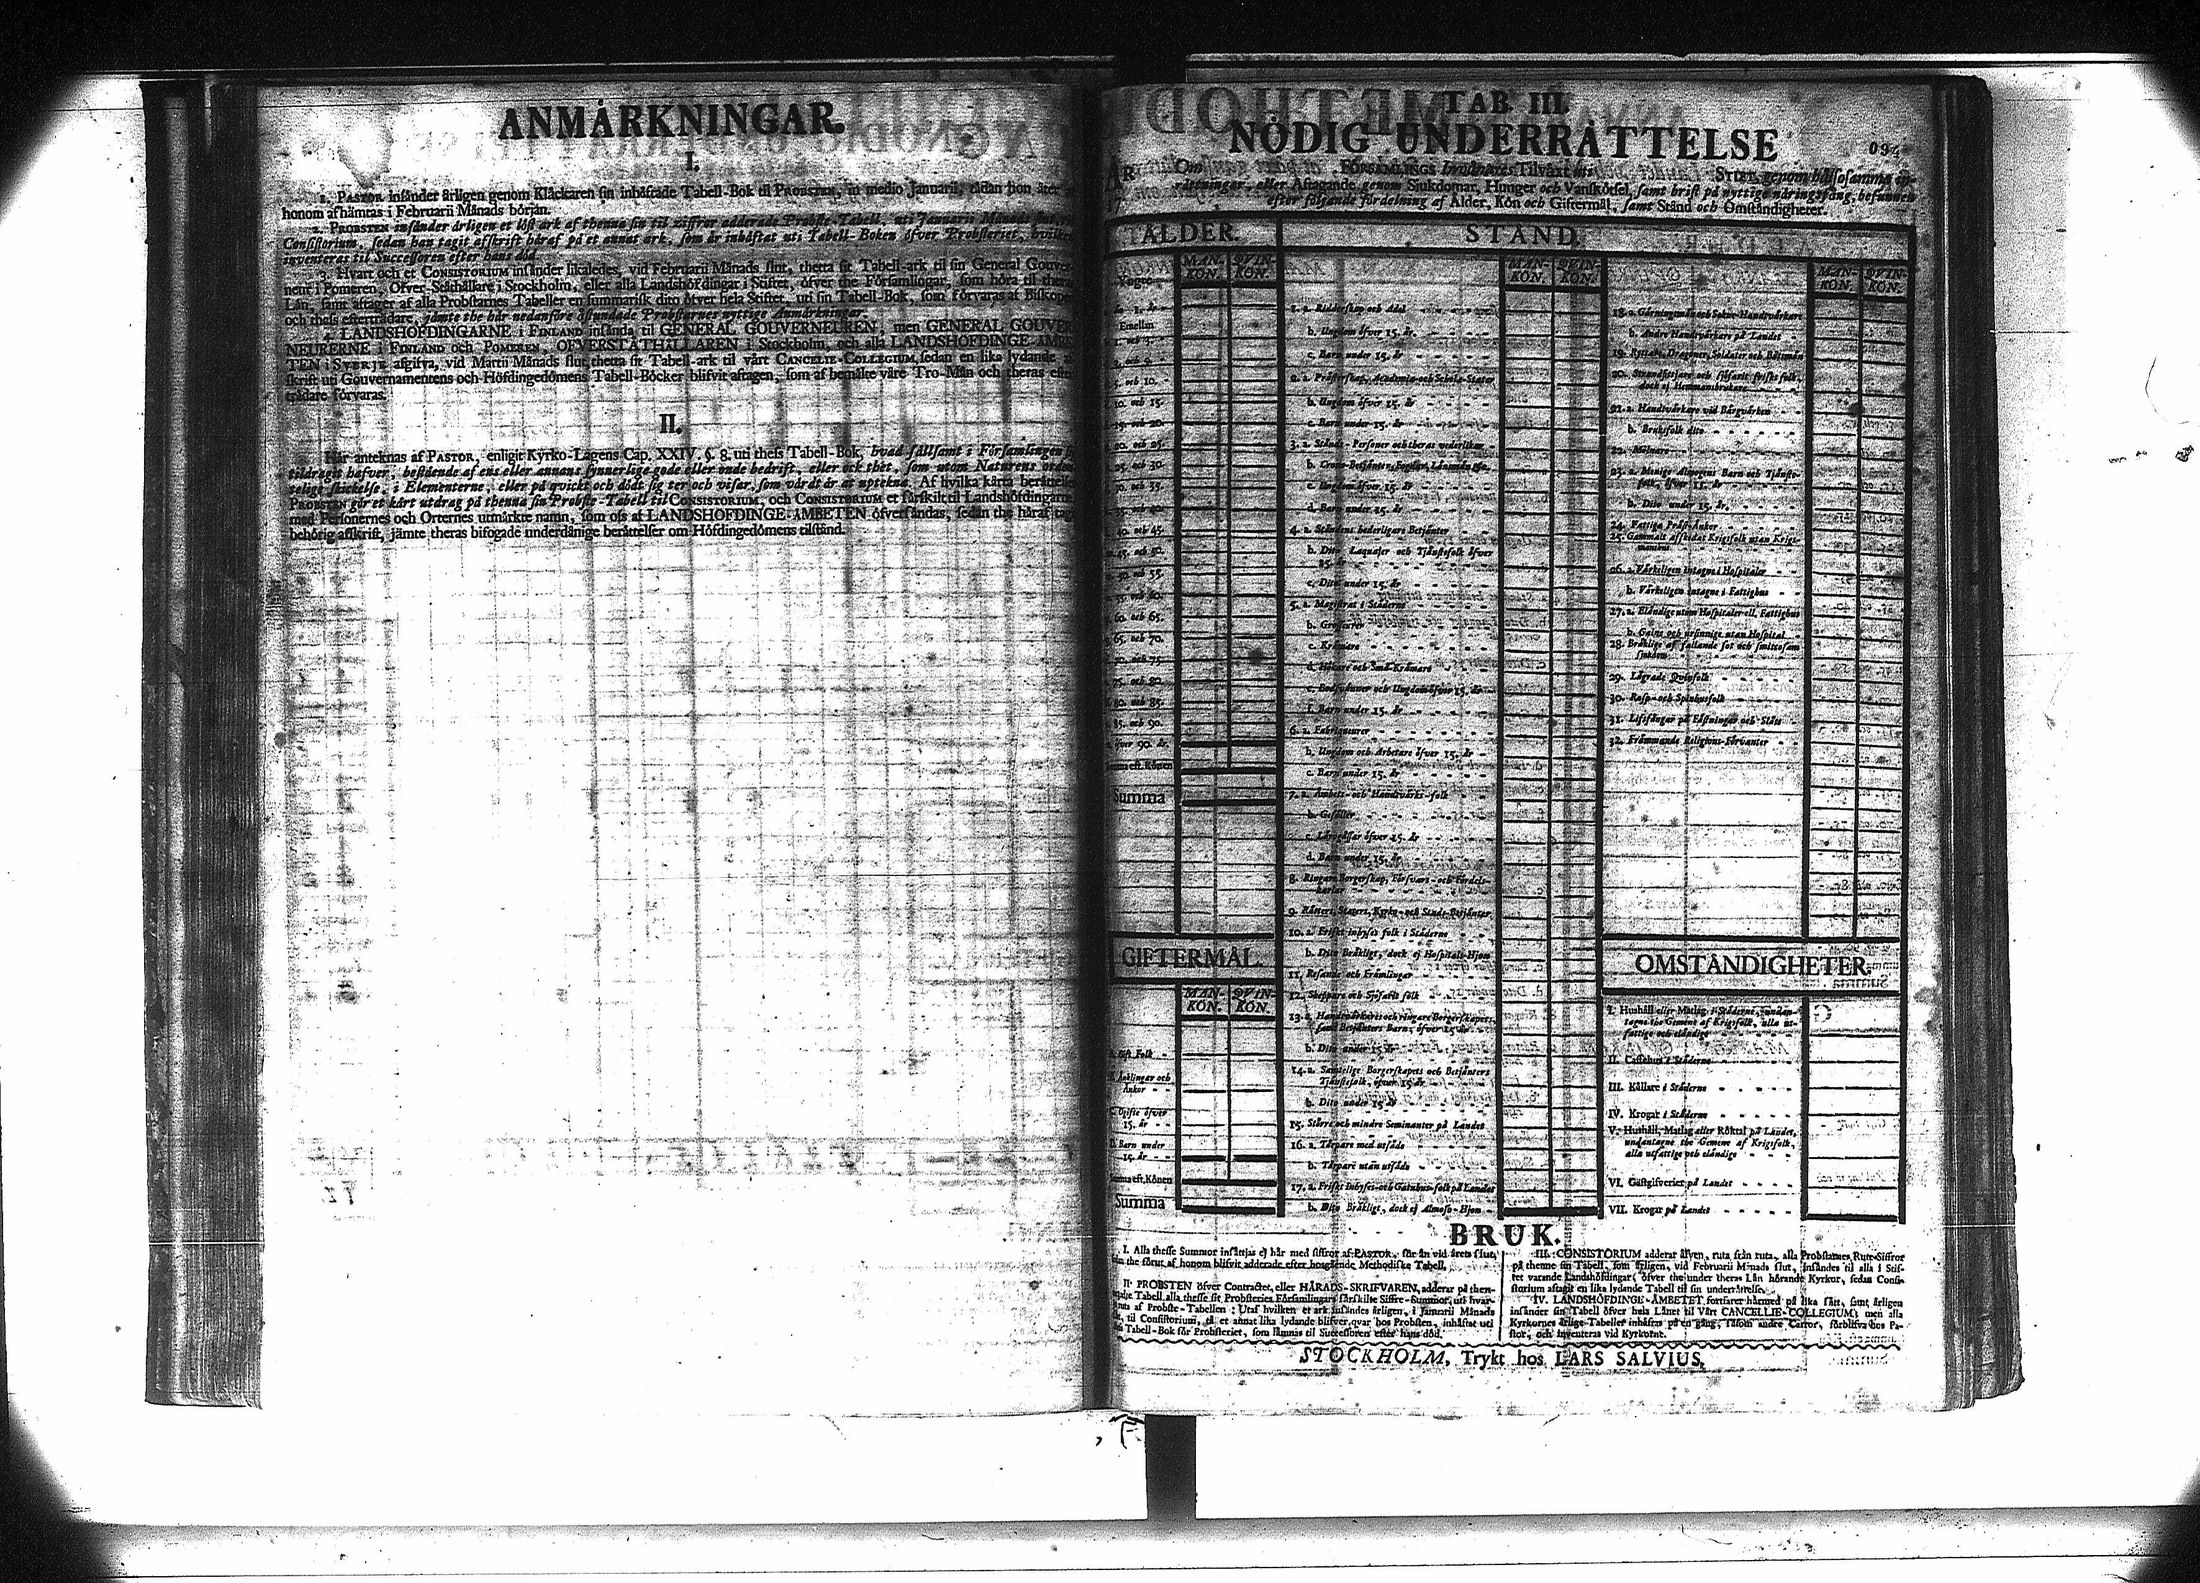 ANMÄRKNINGAR.
I.
1. PASTOR insänder årligen genom Klåckaren sin inhäftade Tabell-Bok til PROBSTEN, in medio Januarii, tådan hon åter
honom afhämtas i Februarii Månads början.
2. PROBSTEN insänder årligen et löst ark af thenna sin til ziffror adderade Probste-Tabell, uti Januarii Månads slut,
Consistorium, sedan han tagit afskrift häraf på et annat ark, som är inhäftat uti Tabell-Boken öfver Probsteriet, hvilken
inventeras til Successoren efter hans död.
3. Hvart och et CONSISTORIUM insänder likaledes, vid Februarii Månads slut, thetta sit Tabell-ark til sin General Gouver-
neur i Pomeren, Öfver-Ståthållare i Stockholm, eller alla Landshöfdingar i Stiftet, öfver the Församlingar, som höra til theras
Län, samt aftager af alla Probstarnes Tabeller en summarisk dito öfver hela Stiftet, uti sin Tabell-Bok, som förvaras åt Biskopen
och thess efterträdare, jämte the här nedanföre åstundade Probstarnes nyttige Anmärkningar.
4. LANDSHÖFDINGARNE i FINLAND insända til GENERAL GOUVERNEUREN; men GENERAL GOUVER-
NEURERNE i FINLAND och POMEREN, ÖFVERSTÅTHÅLLAREN i Stockholm, och alla LANDSHÖFDINGE-ÄMBE-
TEN i SVERJE afgifva, vid Martii Månads slut, thetta sit Tabell-ark til vårt CANCELIE-COLLEGIUM, sedan en lika lydande af-
skrift uti Gouvernamentens och Höfdingedömens Tabell-Böcker blifvit aftagen, som af bemälte våre Tro-Män och theras efter-
trädare förvaras.
II.
Här anteknas af PASTOR, enligit Kyrko-Lagens Cap. XXIV. §. 8. uti thess Tabell-Bok, hvad sällsamt i Församlingen sig
tildragit hafver, bestående af ens eller annans synnerlige gode eller onde bedrift, eller ock thet, som utom Naturens orden-
telige skickelse, i Elementerne, eller på qvickt och dödt sig ter och visar, som värdt är at uptekna. Af hvilka karta berättelser
PROBSTEN gör et kårt utdrag på thenna sin Probste-Tabell til CONSISTORIUM, och CONSISTORIUM et särskilt til Landshöfdingarne
med Personernes och Orternes utmärkte namn, som oss af LANDSHÖFDINGE-ÄMBETEN öfversändas, sedan the häraf tagit
behörig afskrift, jämte theras bifogade underdånige berättelser om Höfdingedömens tilstånd.
TAB. III.
NÖDIG UNDERRÄTTELSE
094
ÅR
Om FÖRSAMLINGS Invånares Tilväxt uti STIFT, genom hälsosamma in-
rättningar, eller Aftagande genom Siukdomar, Hunger och Vanskötsel, samt brist på nyttige näringsfång, befunnen
efter följande fördelning af Ålder, Kön och Giftermål, samt Stånd och Omständigheter.
ÅLDER.
MAN-KÖN. QVIN-KÖN.
Emellan
1. och 3.
3. och 5.
5. och 10.
10. och 15.
15. och 20.
20. och 25.
25. och 30.
30. och 35.
35. och 40.
40. och 45.
45. och 50.
50. och 55.
55. och 60.
60. och 65.
65. och 70.
70. och 75.
75. och 80.
80. och 85.
85. och 90.
öfver 90. år.
Summa eft. Könen
Summa
GIFTERMÅL.
MAN-KÖN. QVIN-KÖN.
A. Gift Folk
B. Änklingar och
Änkor
C. Ogifte öfver
15. år
D. Barn under
15. år
Summa eft. Könen
Summa
STÅND.
MAN-KÖN. QVIN-KÖN.
1. a. Ridderskap och Adel
b. Ungdom öfver 15. år
c. Barn under 15. år
2. a. Prästerskap, Academia- och Schola-Stater
b. Ungdom öfver 15. år
c. Barn under 15. år
3. a. Stånds-Personer och theras vederlikar
b. Crono-Betjänter, Fogdar, Länsmän &c.
c. Ungdom öfver 15. år
d. Barn under 15. år
4. a. Ståndens hederligare Betjänter
b. Dito Laquajer och Tjänstefolk öfver
15. år
c. Dito under 15. år
5. a. Magistrat i Städerne
b. Grosseurer
c. Krämare
d. Hökare och Små-Krämare
e. Bodsvänner och Ungdom öfver 15. år
f. Barn under 15. år
6. a. Fabriqueurer
b. Ungdom och Arbetare öfver 15. år
c. Barn under 15. år
7. a. Ämbets- och Handtvärks-folk
b. Gesäller
c. Lärogåssar öfver 15. år
d. Barn under 15. år
8. Ringare Borgerskap, Försvars- och Fördels-
karlar
9. Rätters, Staters, Kyrko- och Stads-Betjänter
10. a. Friskt inhyses folk i Städerne
b. Dito Bräkligt, dock ej Hospitals-Hjon
11. Resande och Främlingar
12. Skeppare och Sjöfarit folk
13. a. Handtvärkares och ringare Borgerskapets,
samt Betjänters Barn, öfver 15. år
b. Dito under 15. år
14. a. Samtelige Borgerskapets och Betjänters
Tjänstefolk, öfver 15. år
b. Dito under 15. år
15. Större och mindre Seminanter på Landet
16. a. Tärpare med utsäde
b. Tärpare utan utsäde
17. a. Friskt Inhyses- och Gatuhus-folk på Landet
b. Dito Bräkligt, dock ej Almoso-Hjon
MAN-KÖN. QVIN-KÖN.
18. a. Gärningsmän och Sokne-Handtvärkare
b. Andre Handtvärkare på Landet
19. Ryttare, Dragoner, Soldater och Båtsmän
20. Strandsittjare och sjöfarit friskt folk,
dock ej Hemmansbrukare
21. a. Handtvärkare vid Bärgvärken
b. Bruksfolk dito
22. Mölnare
23. a. Menige Almogens Barn och Tjänste-
folk, öfver 15. år
b. Dito under 15. år.
24. Fattiga Präst-Änkor
25. Gammalt afskedat Krigsfolk utan Krigs-
mansbus
26. a. Värkeligen intagne i Hospitaler
b. Värkeligen intagne i Fattighus
27. a. Eländige utom Hospitaler ell. Fattighus
b. Galne och ursinnige utan Hospital
28. Bräklige af fallande sot och smittosam
sjukdom
29. Lägrade Qvinfolk
30. Rasp- och Spinhusfolk
31. Lifsfångar på Fästningar och Slått
32. Främmande Religions-Förvanter
OMSTÄNDIGHETER.
I. Hushåll eller Matlag i Städerne, undan-
tagne the Gemene af Krigsfolk, alla ut-
fattige och eländige
II. Caffehus i Städerne
III. Källare i Städerne
IV. Krogar i Städerne
V. Hushåll, Matlag eller Röktal på Landet,
undantagne the Gemene af Krigsfolk,
alla utfattige och eländige
VI. Gästgifverier på Landet
VII. Krogar på Landet
BRUK.
I. Alla thesse Summor insättjas ej här med siffror af PASTOR, för än vid årets slut,
the förut af honom blifvit adderade efter hosgående Methodiska Tabell.
II. PROBSTEN öfver Contractet, eller HÄRADS-SKRIFVAREN, adderar på then-
Tabell alla thesse sit Probsteries Församlingars särskilte Siffre-Summor, uti hvar-
ruta af Probste-Tabellen: Utaf hvilken et ark insändes årligen, i Januarii Månads
slut, til Consistorium, tå et annat lika lydande blifver qvar hos Probsten, inhäftat uti
Tabell-Bok för Probsteriet, som lämnas til Successoren efter hans död.
III. CONSISTORIUM adderar äfven, ruta från ruta, alla Probstarnes Rute-Siffror
på thenne sin Tabell, som årligen, vid Februarii Månads slut, insändes til alla i Stif-
tet varande Landshöfdingar, öfver the under theras Län hörande Kyrkor, sedan Consi-
storium aftagit en lika lydande Tabell til sin underrättelse.
IV. LANDSHÖFDINGE-ÄMBETET fortfarer härmed på lika sätt, samt årligen
insänder sin Tabell öfver hela Länet til Vårt CANCELLIE-COLLEGIUM; men alla
Kyrkornes årlige Tabeller inhäftas på en gång, såsom andre Cartor, förblifva hos Pa-
stor, och inventeras vid Kyrkorne.
STOCKHOLM, Trykt hos LARS SALVIUS.